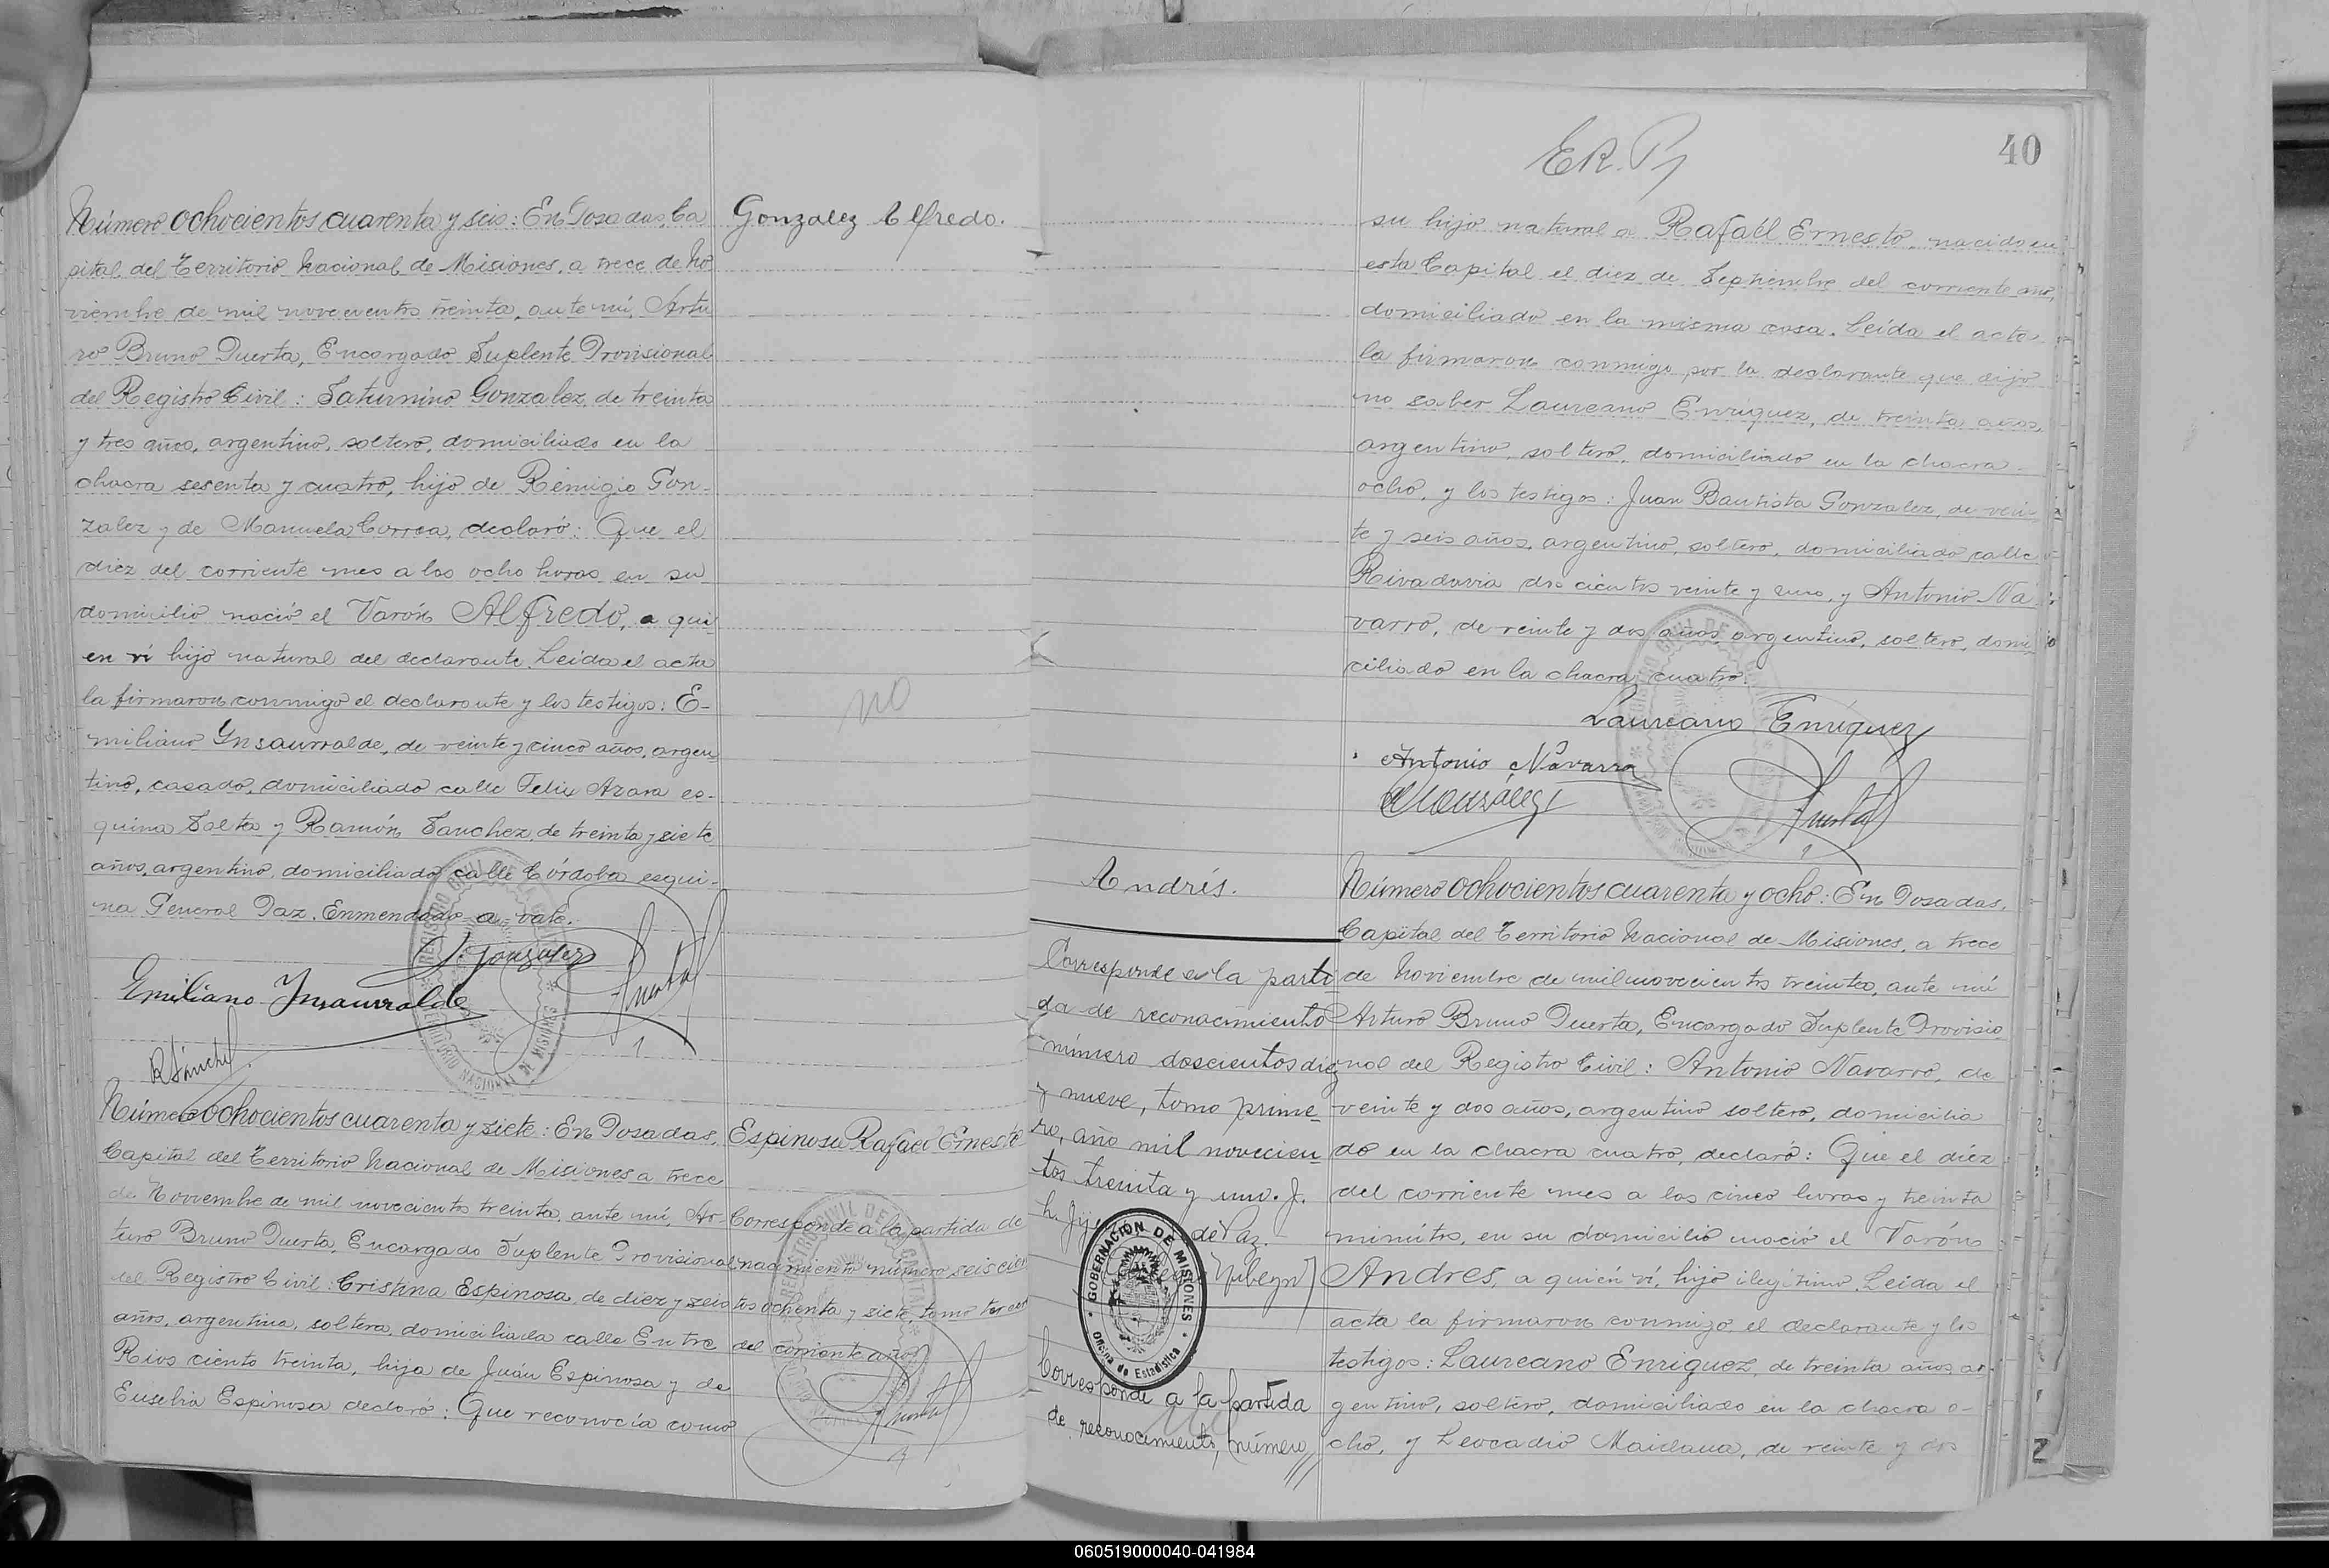 Número ochocientos cuarenta y seis: En Posadas, Ca
pital del Territorio Nacional de Misiones, a trece de No
viembre de mil novecientos treinta, ante mí, Artu
ro Bruno Puerta, Encargado Suplente Provisional
del Registro Civil: Saturnino Gonzalez, de treinta
y tres años, argentino, soltero, domiciliado en la
chacra sesenta y cuatro, hijo de Remigio Gon-
zalez y de Manuela Correa, declaró: Que el
diez del corriente mes a las ocho horas en su
domicilio nació el Varón Alfredo, a qui
en ví hijo natural del declarante. Leída el acta
la firmaron conmigo el declarante y los testigos: E-
miliano Ynsaurralde, de veinte y cinco años, argen
tino, casado, domiciliado calle Felix Azara es-
quina Salta y Ramón Sanchez, de treinta y siete
años, argentino, domiciliado calle Córdoba esqui-
na General Paz. Enmendado a vale.
S. Gonzalez
Emiliano Insaurralde
Puerta
R Sánchez
Gonzalez Alfredo.
no
Número ochocientos cuarenta y siete: En Posadas,
Capital del Territorio Nacional de Misiones a trece
de Noviembre de mil novecientos treinta, ante mí, Ar-
turo Bruno Puerta, Encargado Suplente Provisional
del Registro Civil: Cristina Espinosa, de diez y seis
años, argentina, soltera, domiciliada calle Entre
Rios ciento treinta, hija de Juán Espinosa y de
Eusebia Espinosa declaró: Que reconocía como
Espinosa Rafael Ernesto
Corresponde a la partida de
nacimiento número seiscien
tos ochenta y siete, tomo tercero
del corriente año
Puerta
E.R.
40
su hijo natural a Rafaél Ernesto, nacido en
esta Capital el diez de Septiembre del corriente año,
domiciliado en la misma casa. Leída el acta
la firmaron conmigo por la declarante que dijo
no saber Laureano Enriquez, de treinta años,
argentino, soltero, domiciliado en la chacra
ocho, y los testigos: Juan Bautista Gonzalez, de vein-
te y seis años, argentino, soltero, domiciliado calle
Rivadavia doscientos veinte y uno, y Antonio Na
varro, de veinte y dos años, argentino, soltero, domi
ciliado en la chacra cuatro.
Laureano Enríquez
Antonio Navarro
Puerta
Andrés.
Corresponde a la parti
da de reconocimiento
número doscientos diez
y nueve, tomo prime
ro, año mil novecien
tos treinta y uno. J.
de Paz.
GOBERNACIÓN DE MISIONES
Oficina de Estadística
Corresponde a la partida
de reconocimiento, número
Número ochocientos cuarenta y ocho: En Posadas,
Capital del Territorio Nacional de Misiones, a trece
de Noviembre de mil novecientos treinta, ante mí
Arturo Bruno Puerta, Encargado Suplente Provisio
nal del Registro Civil: Antonio Navarro, de
veinte y dos años, argentino soltero, domicilia
do en la chacra cuatro, declaró: Que el diéz
del corriente mes a las cinco horas y treinta
minutos, en su domicilio nació el Varón
Andres, a quien ví, hijo ilegítimo. Leída el
acta la firmaron conmigo el declarante y los
testigos: Laureano Enriquez, de treinta años, ar
gentino, soltero, domiciliado en la chacra o-
cho, y Leocadio Maidana, de veinte y dos
060519000040-041984